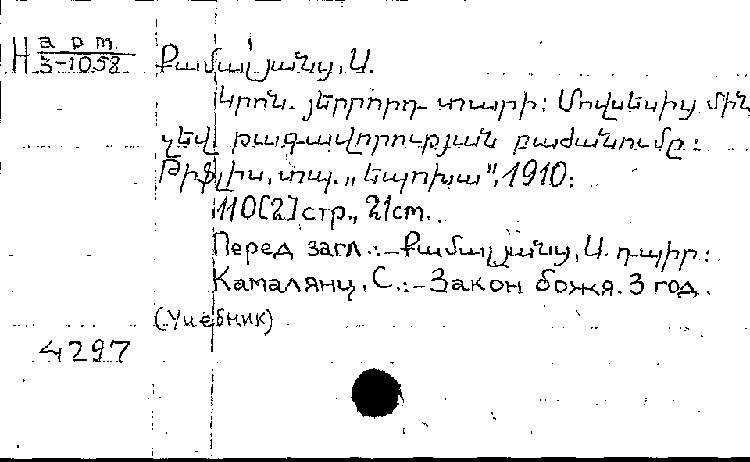 Н арт 3-1058 Քամալյանց, Ս.
Կրոն. յերրորդ տարի: Մովսեսից մին-
չեվ թագավորության բաժանումը:
Թիֆլիս, տպ. „Եպոխա", 1910:
110[2] стр., 21 cm.
Перед загл.:-Քամալյանց, Ս. դպիր:
Камалянц, С.:-Закон божя. 3 год.
(Учебник)
4297